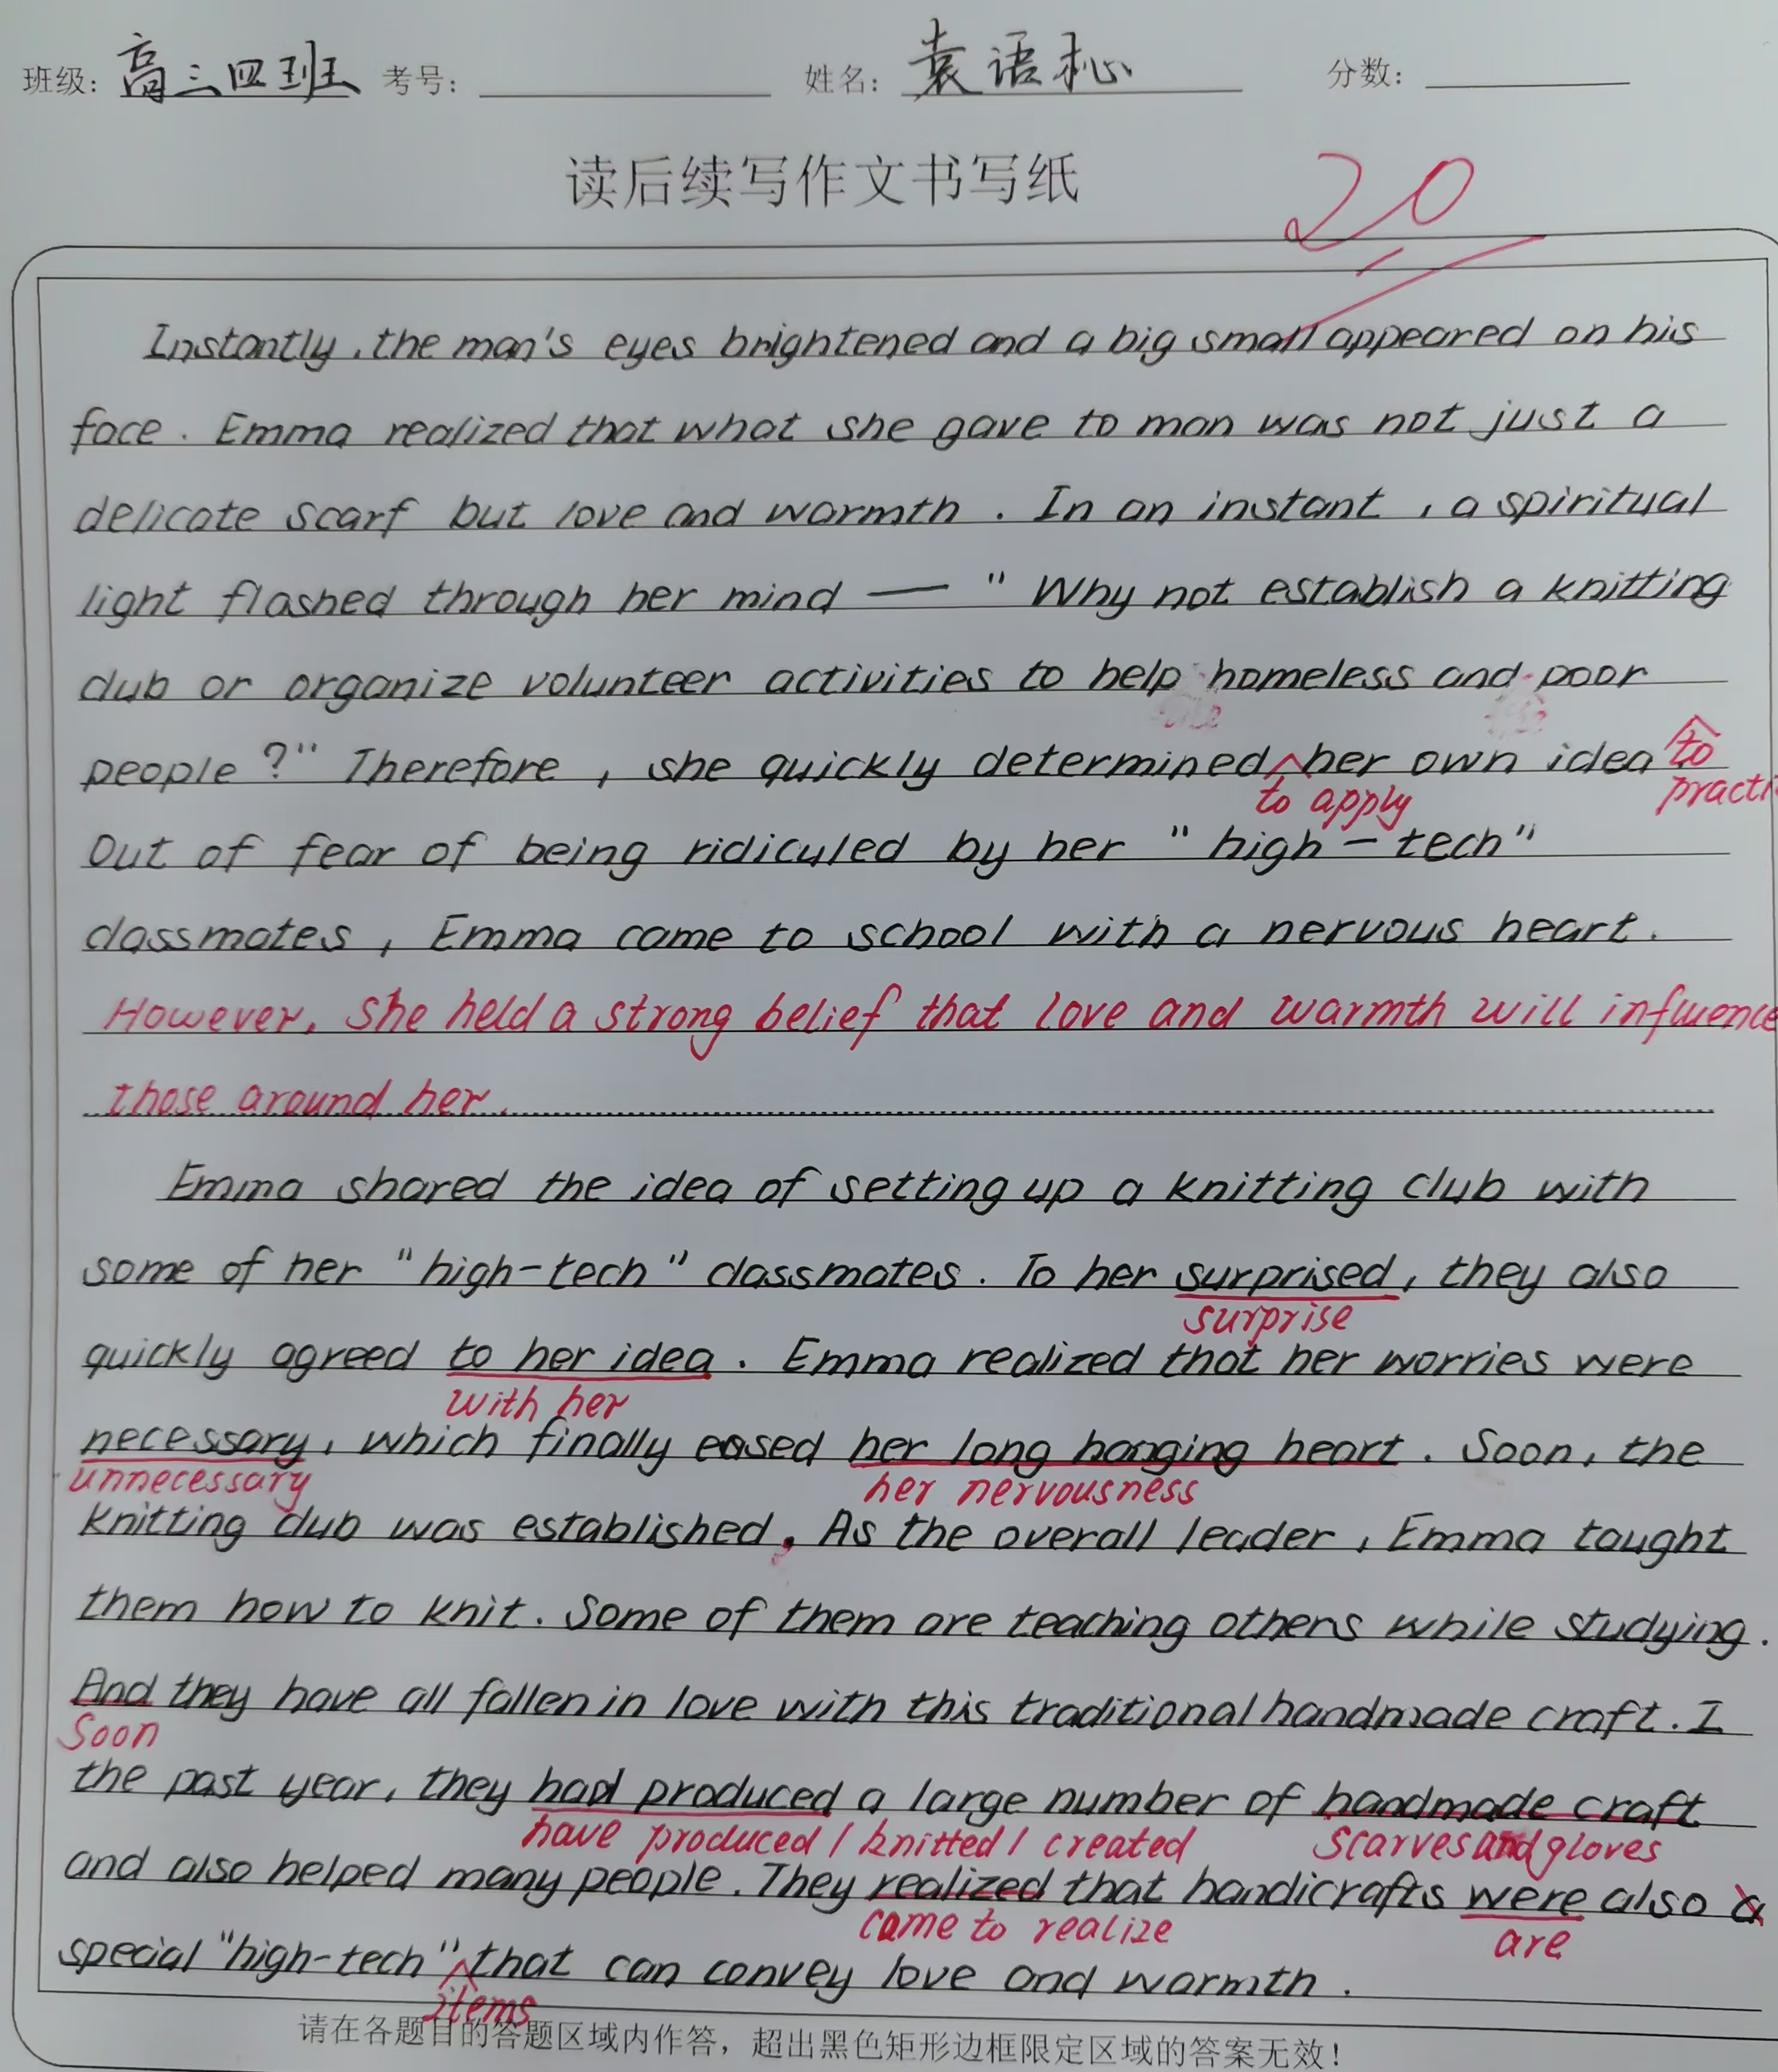 班级: 高三四班 考号: 姓名: 袁语杺 分数:
读后续写作文书写纸
20
Instantly, the man's eyes brightened and a big small appeared on his
face. Emma realized that what she gave to man was not just a
delicate scarf but love and warmth. In an instant, a spiritual
light flashed through her mind — "Why not establish a knitting
club or organize volunteer activities to help homeless and poor
people?" Therefore, she quickly determined her own idea to
to apply practi
Out of fear of being ridiculed by her "high-tech"
classmates, Emma came to school with a nervous heart.
However, she held a strong belief that love and warmth will influence
those around her.
Emma shared the idea of setting up a knitting club with
some of her "high-tech" classmates. To her surprised, they also
surprise
quickly agreed to her idea. Emma realized that her worries were
with her
necessary, which finally eased her long hanging heart. Soon, the
unnecessary her nervousness
knitting club was established. As the overall leader, Emma taught
them how to knit. Some of them are teaching others while studying.
And they have all fallen in love with this traditional handmade craft. I
Soon
the past year, they had produced a large number of handmade craft
have produced / knitted / created scarves and gloves
and also helped many people. They realized that handicrafts were also a
came to realize are
special "high-tech" that can convey love and warmth.
items
请在各题目的答题区域内作答，超出黑色矩形边框限定区域的答案无效！